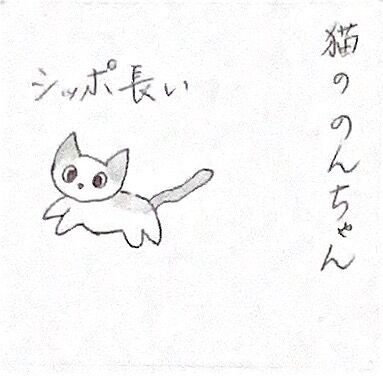 猫ののんちゃん
シッポ長い